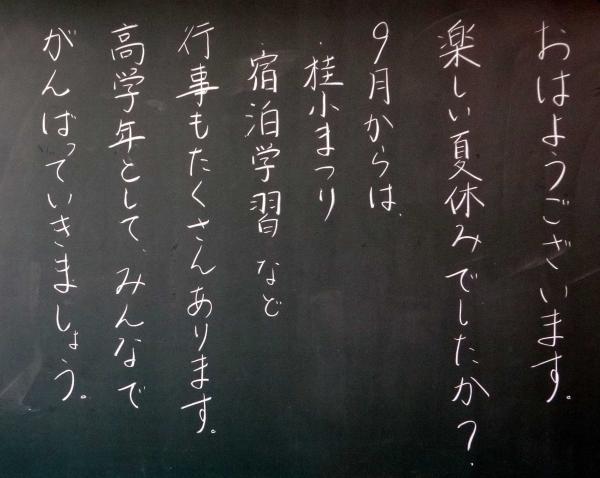 おはようございます。
楽しい夏休みでしたか？
9月からは、
・桂小まつり
・宿泊学習など
行事もたくさんあります。
高学年として、みんなで
がんばっていきましょう。